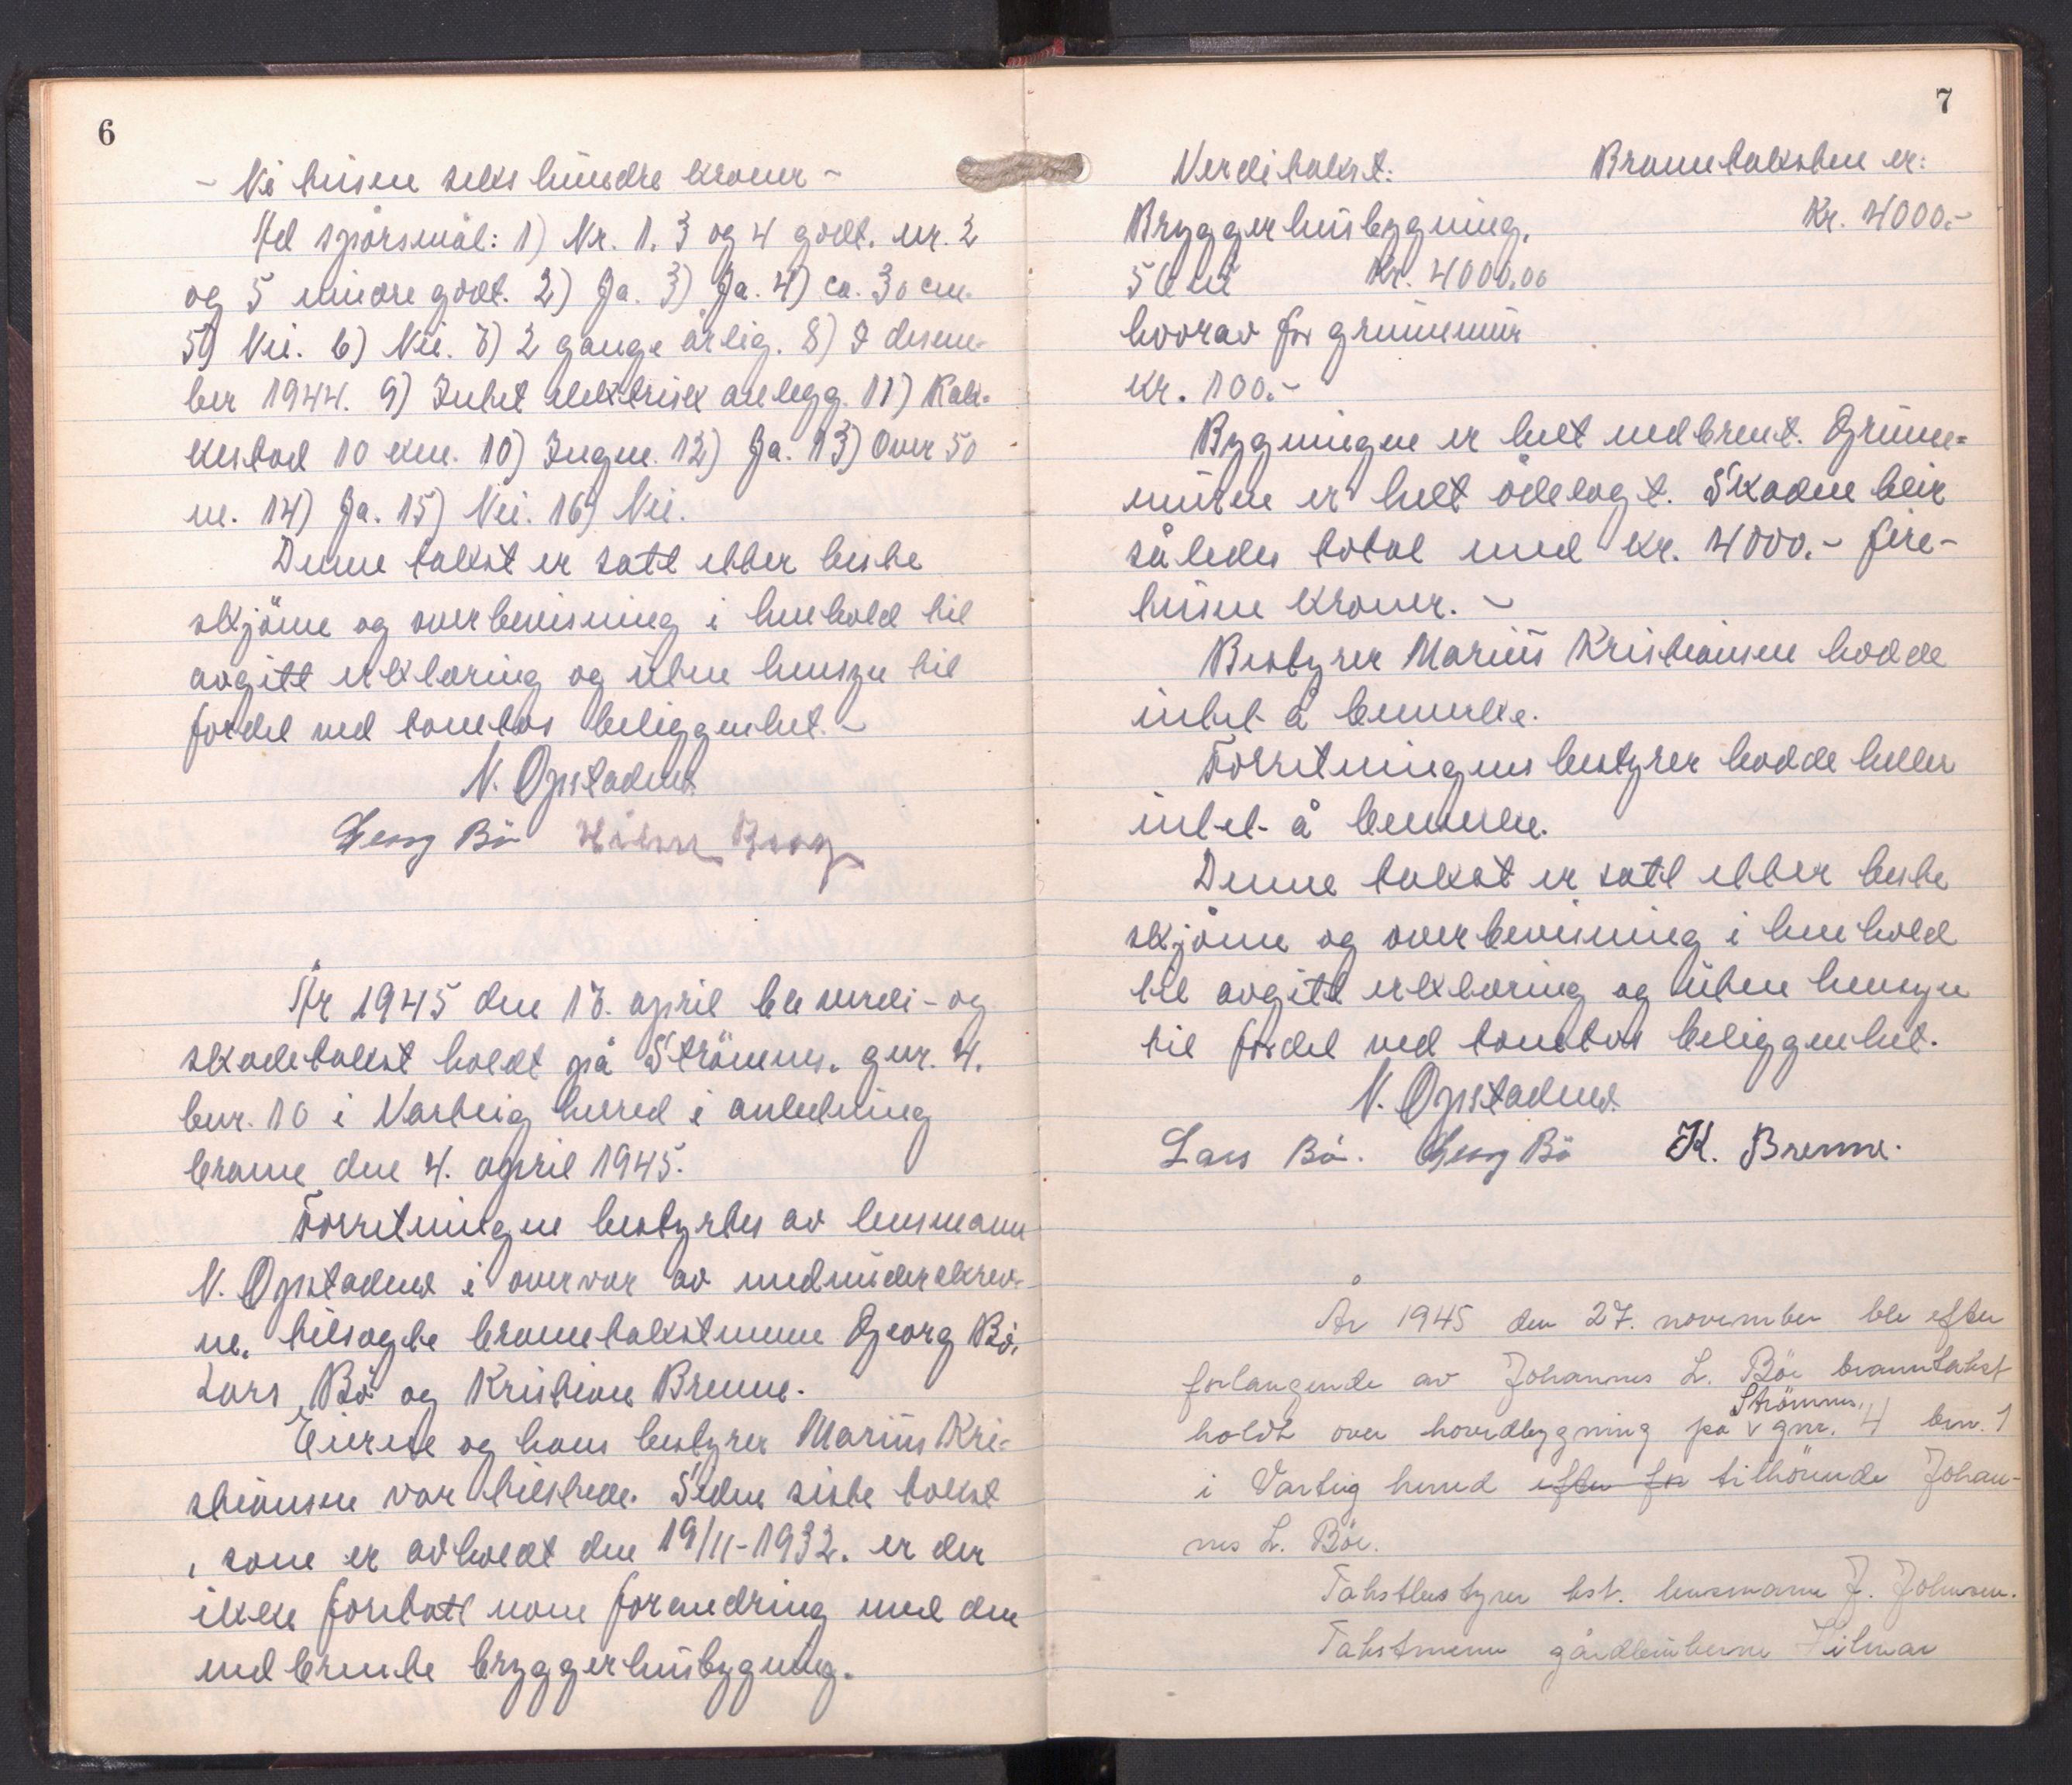 6
- Ni tusen seks hundre kroner -
Ad spørsmål: 1) Nr. 1, 3 og 4 godt. nr. 2
og 5 mindre godt. 2) Ja. 3) Ja. 4) ca. 30 cm.
5) Nei. 6) Nei. 7) 2 gange årlig. 8) I desem-
ber 1944. 9) Intet elektrisk anlegg. 11) Rak-
kestad 10 km. 10) Ingen. 12) Ja. 13) Over 50
m. 14) Ja. 15) Nei. 16) Nei.
Denne takst er satt etter beste
skjönn og overbevisning i henhold til
avgitt erklæring og uten hensyn til
fordel ved tomtas beliggenhet. -
N. Opstadens
Georg Bö
År 1945 den 17. april ble verdi- og
skadetakst holdt på Strömnes, gnr. 4,
bnr. 10 i Varteig herred i anledning
brann den 4. april 1945.
Forretningen bestyrtes av lensmann
N. Opstadens i overvær av medunderskrev-
ne, tilsagte branntakstmenn Georg Bö,
Lars Bö og Kristian Brenne.
Eieren og hans bestyrer Marius Kri-
stiansen var tilstede. Siden siste takst
, som er avholdt den 19/11-1932. er der
ikke foretatt noen forandring med den
nedbrente bryggerhusbygning.
7
Verditakst: Branntaksten er:
Bryggerhusbygning, Kr. 4000.-
56 m² Kr. 4000,00
hvorav for grunnmur
kr. 100.-
Bygningen er helt nedbrent. Grunn-
muren er helt ödelagt. Skaden blir
således total med kr. 4000.- fire-
tusen kroner. -
Bestyrer Marius Kristiansen hadde
intet å bemerke.
Forretningens bestyrer hadde heller
intet å bemerke.
Denne takst er satt etter beste
skjönn og overbevisning i henhold
til avgitt erklæring og uten hensyn
til fordel ved tomtas beliggenhet.
N. Opstadens
Lars Bö. Georg Bö K. Brenne.
År 1945 den 27. november ble efter
forlangende av Johannes L. Böe branntakst
Strömnes,
holdt over hovedbygning på v gnr. 4 bnr. 1
i Varteig herred efter for tilhörende Johan-
nes L. Böe.
Takstbestyrer bst. lensmann J. Johnsen.
Takstmenn gårdbrukerne Hilmar